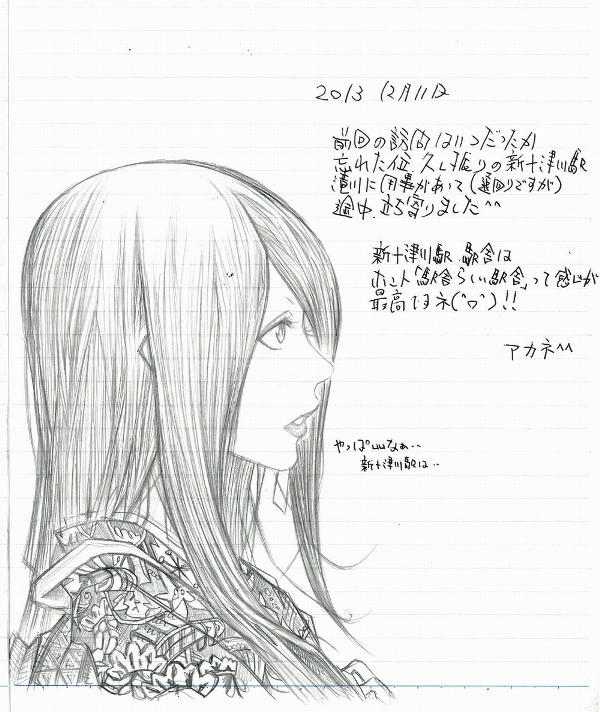 2013 12月11日
前回の訪問はいつだったか
忘れた位 久し振りの新十津川駅
滝川に用事があって(遠回りですが)
途中 立ち寄りました^^
新十津川駅 駅舎は
ホント「駅舎らしい駅舎」って感じが
最高ですネ(^o^)!!
アカネ^^
やっぱいいなぁ‥
新十津川駅は‥